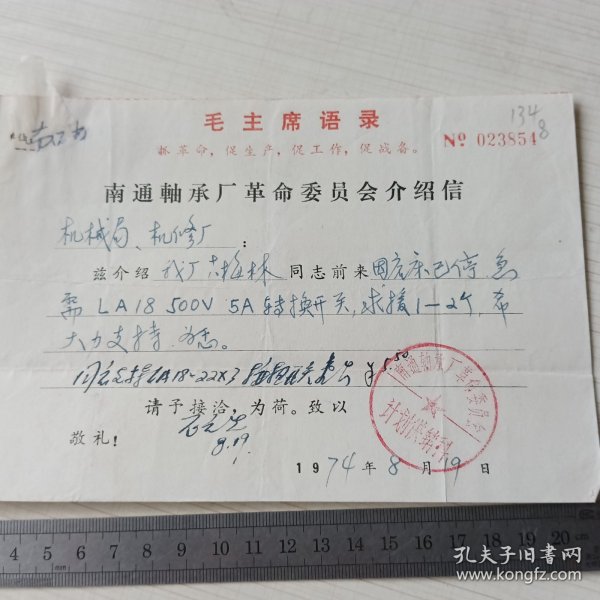 毛主席语录
134
8
抓革命,促生产,促工作,促战备。
№ 023854
南通軸承厂革命委员会介绍信
机械局、机修厂:
兹介绍 我厂 梅林 同志前来 因 床已停 急
需 LA18 500V 5A 转换开关, 求援1-2个, 希
大力支持 为感。
同意支持LA18-22X3 ¥5.50
请予接洽,为荷。致以
敬礼!
8.19
1974年8月19日
南通軸承厂革命委员会
计划供销科
4 5 6 7 8 9 10 11 12 13 14 15 16 17 18 19 20 cm
孔夫子旧書网
www.kongfz.com